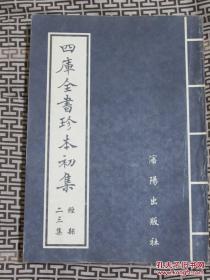 四庫全書珍本初集
經部
二三集
瀋陽出版社